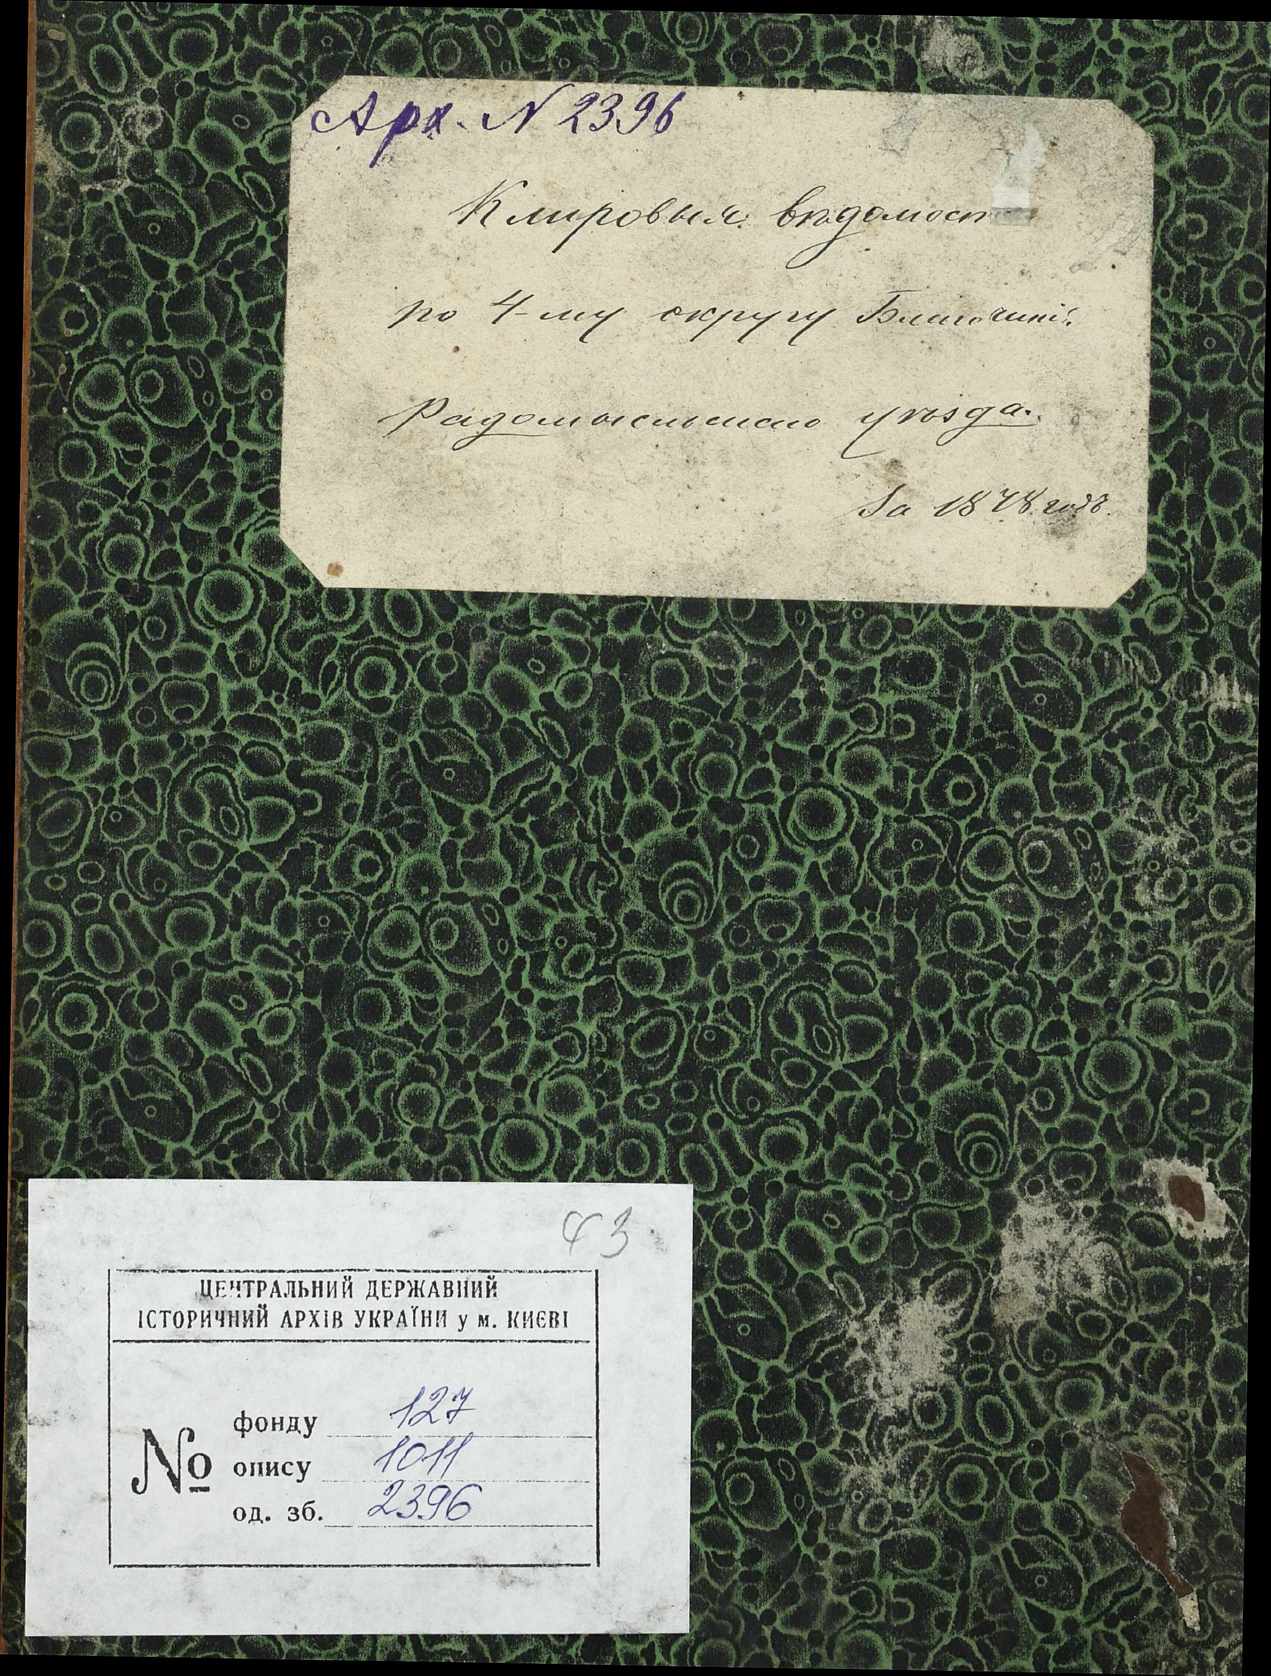 Арх. N 2396
Клировыя вѣдомост
по 4-му округу Благочинія
Радомысльскаго уѣзда.
За 1878 годъ.
43
ЦЕНТРАЛЬНИЙ ДЕРЖАВНИЙ
ІСТОРИЧНИЙ АРХІВ УКРАЇНИ у м. КИЄВІ
№
фонду 127
опису 1011
од. зб. 2396